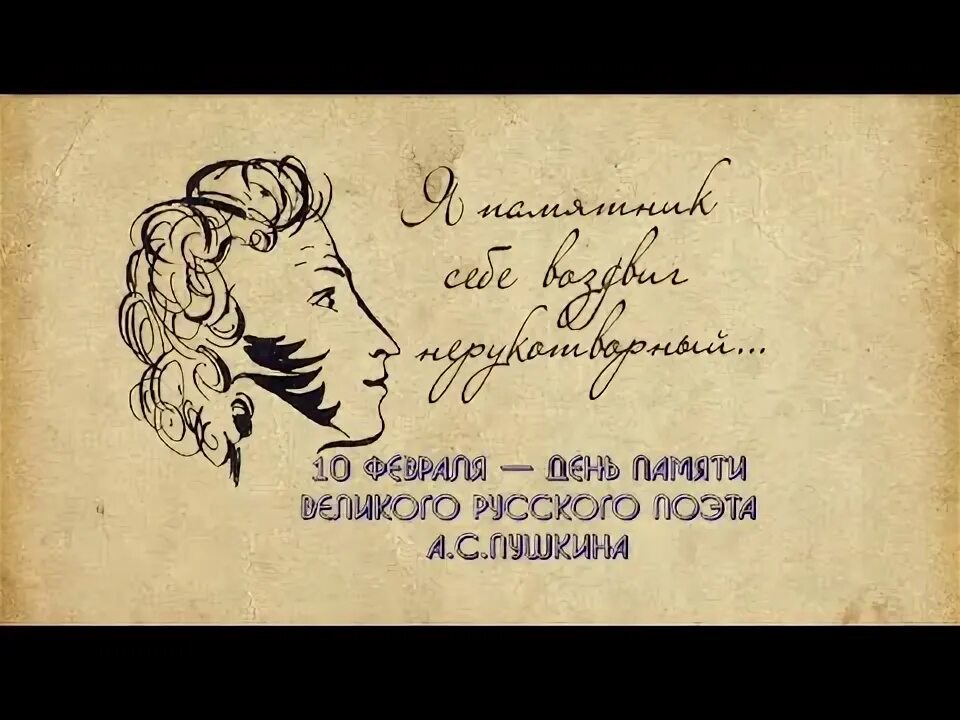 Я памятник
себе воздвиг
нерукотворный...
10 ФЕВРАЛЯ — ДЕНЬ ПАМЯТИ
ВЕЛИКОГО РУССКОГО ПОЭТА
А.С.ПУШКИНА